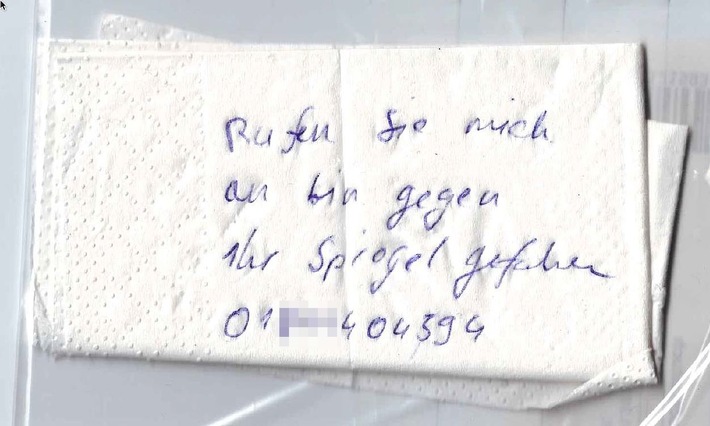 Rufen Sie mich
an bin gegen
Ihr Spiegel gefahren
01 404394